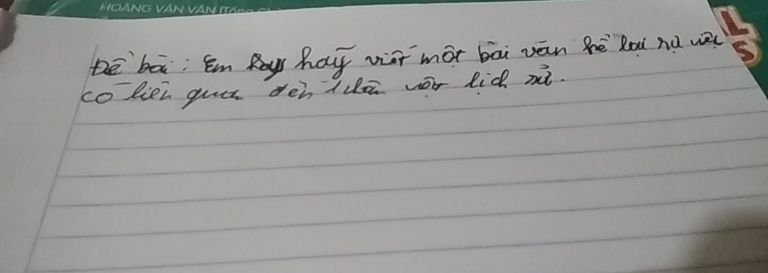 HOÀNG VĂN VÂN
L
S
Đề bài: Em hãy viết một bài văn kể lại sự việc
có liên quan đến nhân vật lịch sử.